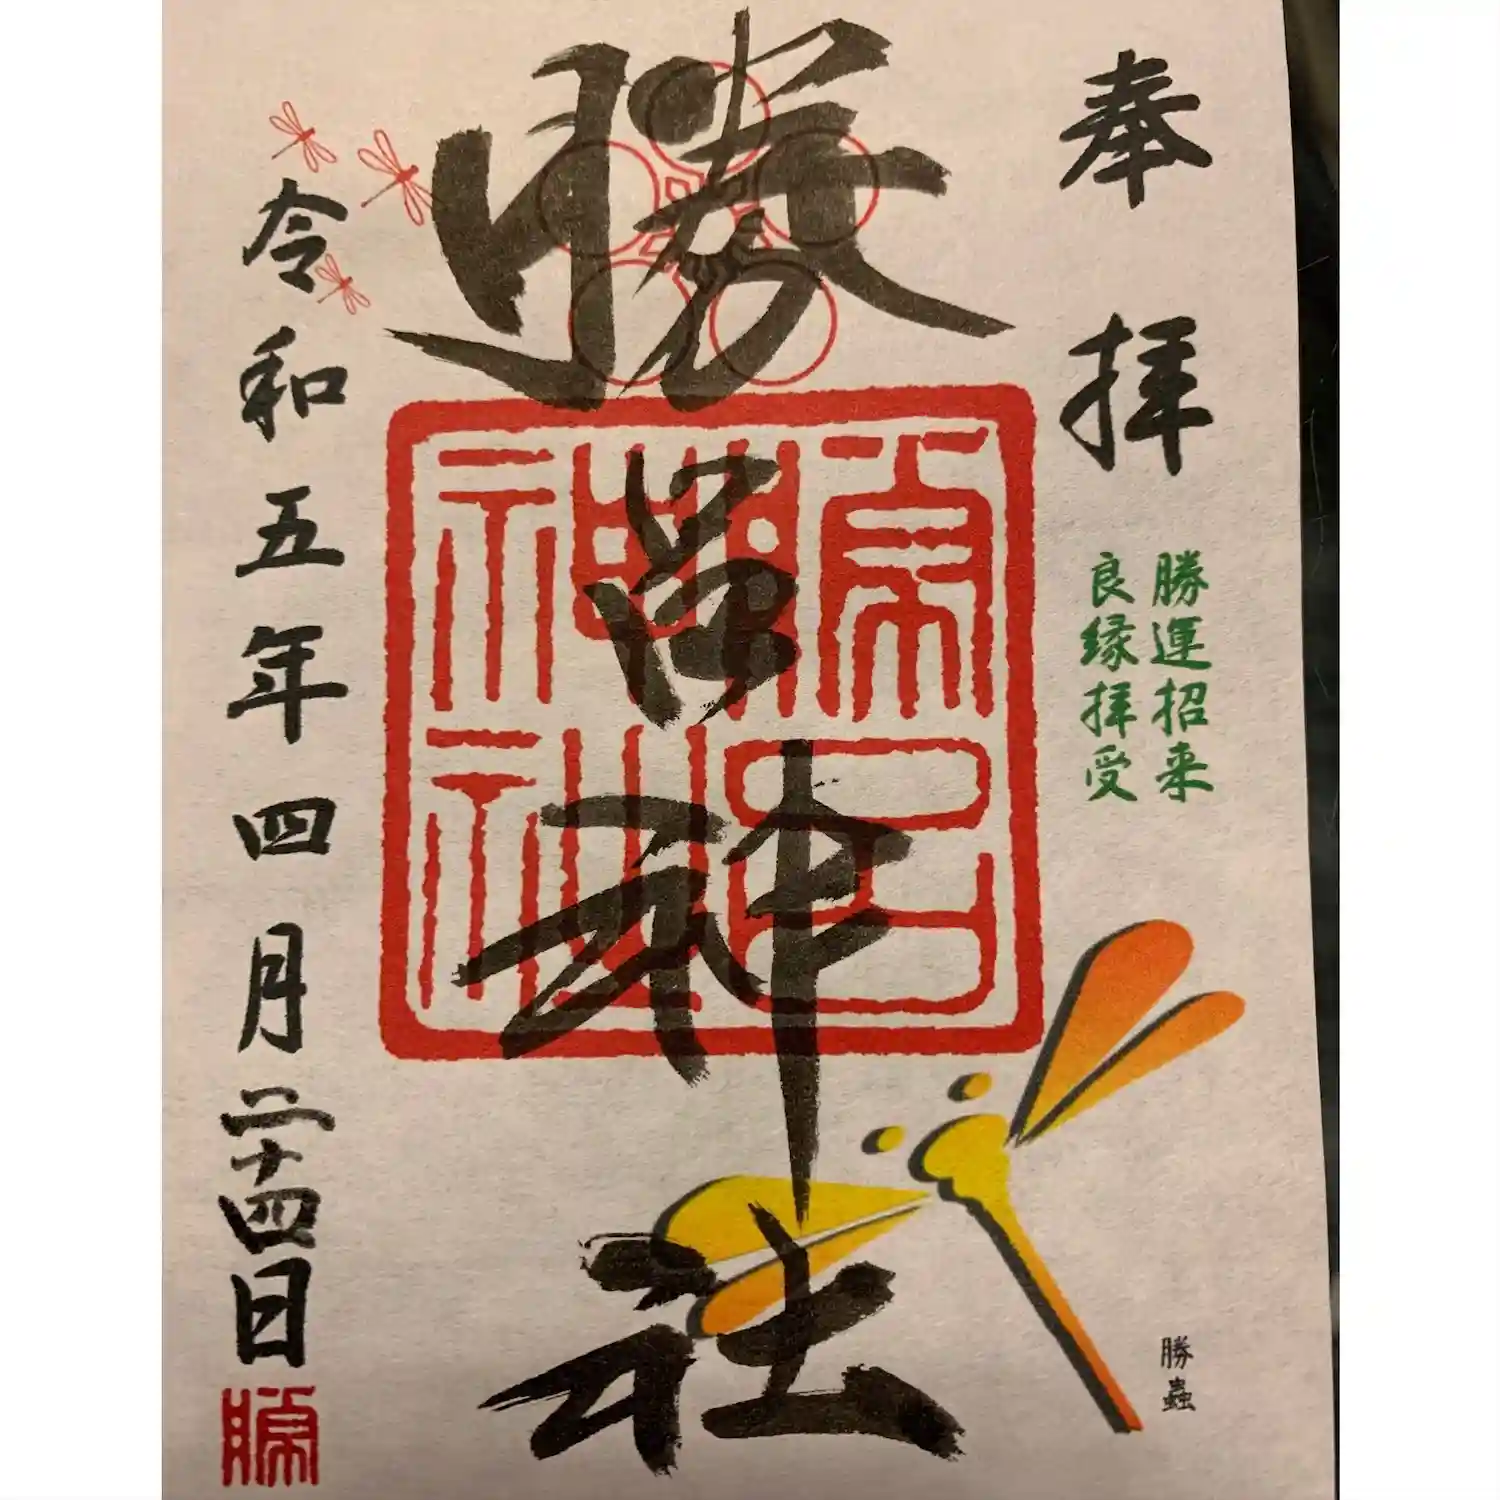 奉拝
勝運招来
良縁拝受
勝蟲
勝呂神社
勝呂
神社
令和五年四月二十四日
勝